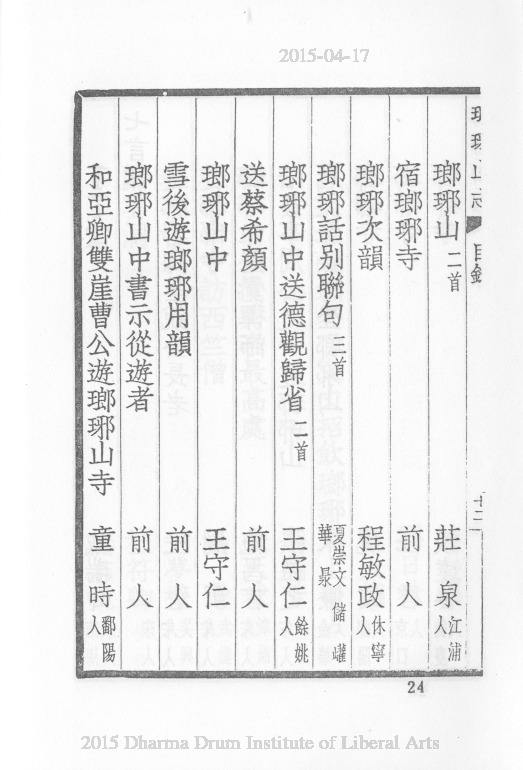 2015-04-17
瑯琊山志 目錄 十二
瑯琊山 二首 莊泉 江浦人
宿瑯琊寺 前人
瑯琊次韻 程敏政 休寧人
瑯琊話別聯句 三首 夏崇文 儲巏 華㫤
瑯琊山中送德觀歸省 二首 王守仁 餘姚人
送蔡希顏 前人
瑯琊山中 王守仁
雪後遊瑯琊用韻 前人
瑯琊山中書示從遊者 前人
和亞卿雙崖曹公遊瑯琊山寺 童時 鄱陽人
24
2015 Dharma Drum Institute of Liberal Arts